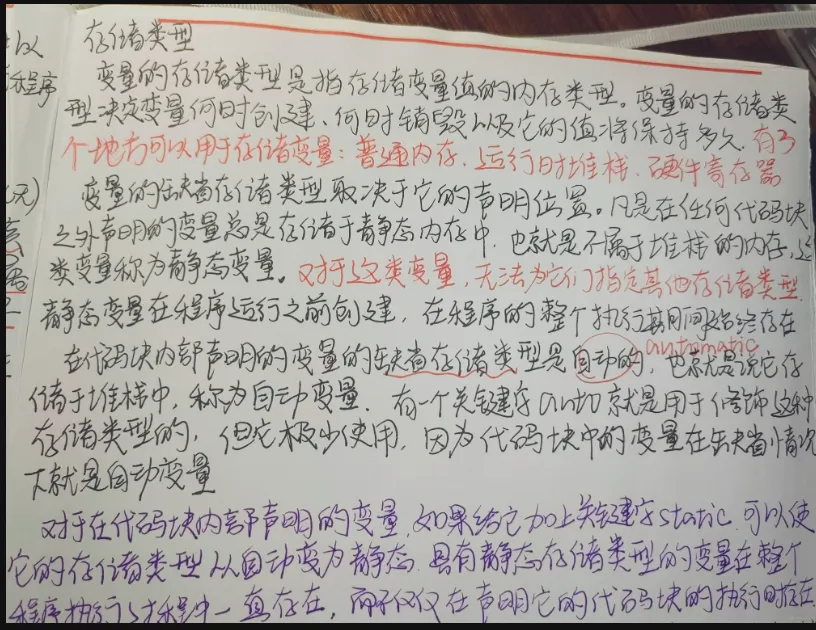 存储类型
变量的存储类型是指存储变量值的内存类型。变量的存储类
型决定变量何时创建、何时销毁以及它的值将保持多久。有3
个地方可以用于存储变量:普通内存、运行时堆栈、硬件寄存器
变量的缺省存储类型取决于它的声明位置。凡是在任何代码块
之外声明的变量总是存储于静态内存中,也就是不属于堆栈的内存,这
类变量称为静态变量。对于这类变量,无法为它们指定其他存储类型.
静态变量在程序运行之前创建,在程序的整个执行期间始终存在
automatic
在代码块内部声明的变量的缺省存储类型是自动的,也就是说它存
储于堆栈中,称为自动变量.有一个关键字auto就是用于修饰这种
存储类型的,但它极少使用,因为代码块中的变量在缺省情况
下就是自动变量
对于在代码块内部声明的变量,如果给它加上关键字static,可以使
它的存储类型从自动变为静态.具有静态存储类型的变量在整个
程序执行过程中一直存在,而不仅仅在声明它的代码块的执行时存在
以
程序